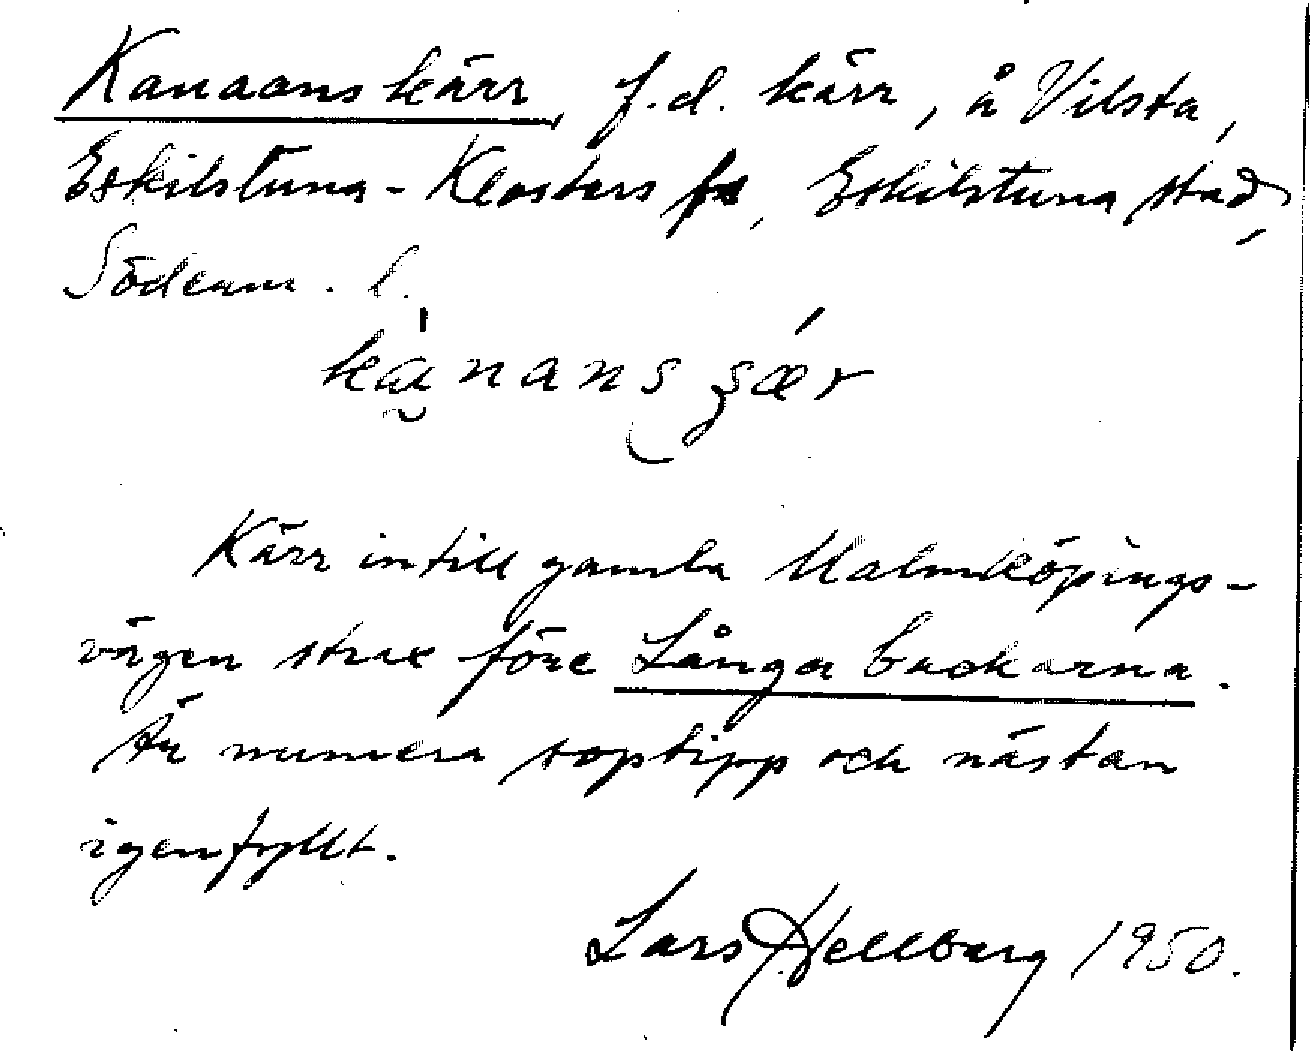 Kanaanskärr, f.d. kärr, å Vilsta,
Eskilstuna-Klosters fs, Eskilstuna stad,
Söderm. l.
Kärr intill gamla Malmköpings-
vägen strax före Långa backarna.
Är numera soptipp och nästan
igenfyllt.
Lars Hellberg 1950.